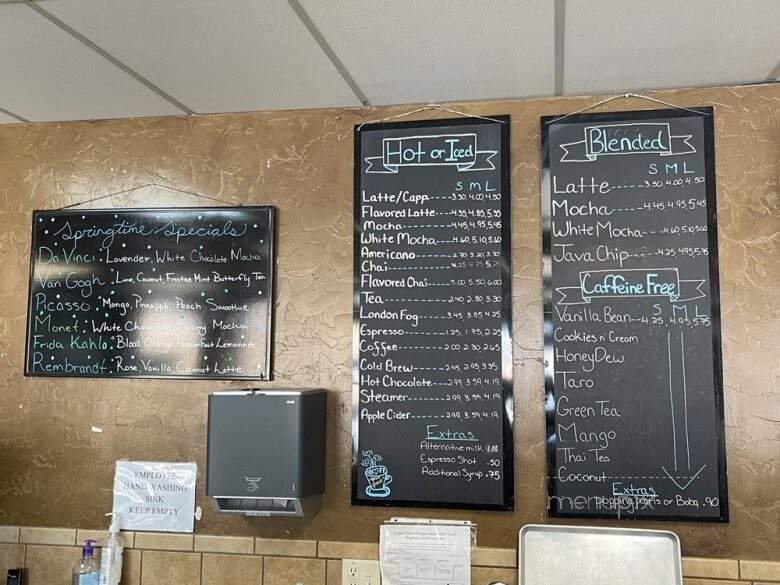 Springtime Specials
Da Vinci. Lavender, White Chocolate Mocha
Van Gogh. Lime, Coconut, Frosted Mint Butterfly Tea
Picasso. Mango, Pineapple, Peach Smoothie
Monet. White Chocolate, Cherry Mocha
Frida Kahlo. Blood Orange, Passionfruit Lemonade
Rembrandt. Rose, Vanilla, Coconut Latte
EMPLOYEE
HAND WASHING
SINK
KEEP EMPTY
Hot or Iced
S M L
Latte/Capp. 3.50 4.00 4.50
Flavored Latte 4.35 4.85 5.35
Mocha 4.45 4.95 5.45
White Mocha 4.60 5.10 5.60
Americano 2.70 3.20 3.70
Chai 4.25 4.75 5.25
Flavored Chai 5.00 5.50 6.00
Tea 2.40 2.80 3.30
London Fog 3.45 3.85 4.25
Espresso 1.25 1.75 2.25
Coffee 2.00 2.30 2.65
Cold Brew 2.45 2.95 3.35
Hot Chocolate 2.99 3.59 4.19
Steamer 2.99 3.59 4.19
Apple Cider 2.99 3.59 4.19
Extras
Alternative milk 1.00
Espresso Shot .50
Additional Syrup .75
Blended
S M L
Latte 3.50 4.00 4.50
Mocha 4.45 4.95 5.45
White Mocha 4.60 5.10 5.60
Java Chip 4.25 4.95 5.75
Caffeine Free
S M L
Vanilla Bean 4.25 4.95 5.75
Cookies n' Cream
HoneyDew
Taro
Green Tea
Mango
Thai Tea
Coconut
Extras
Popping pearls or Boba .90
menupix